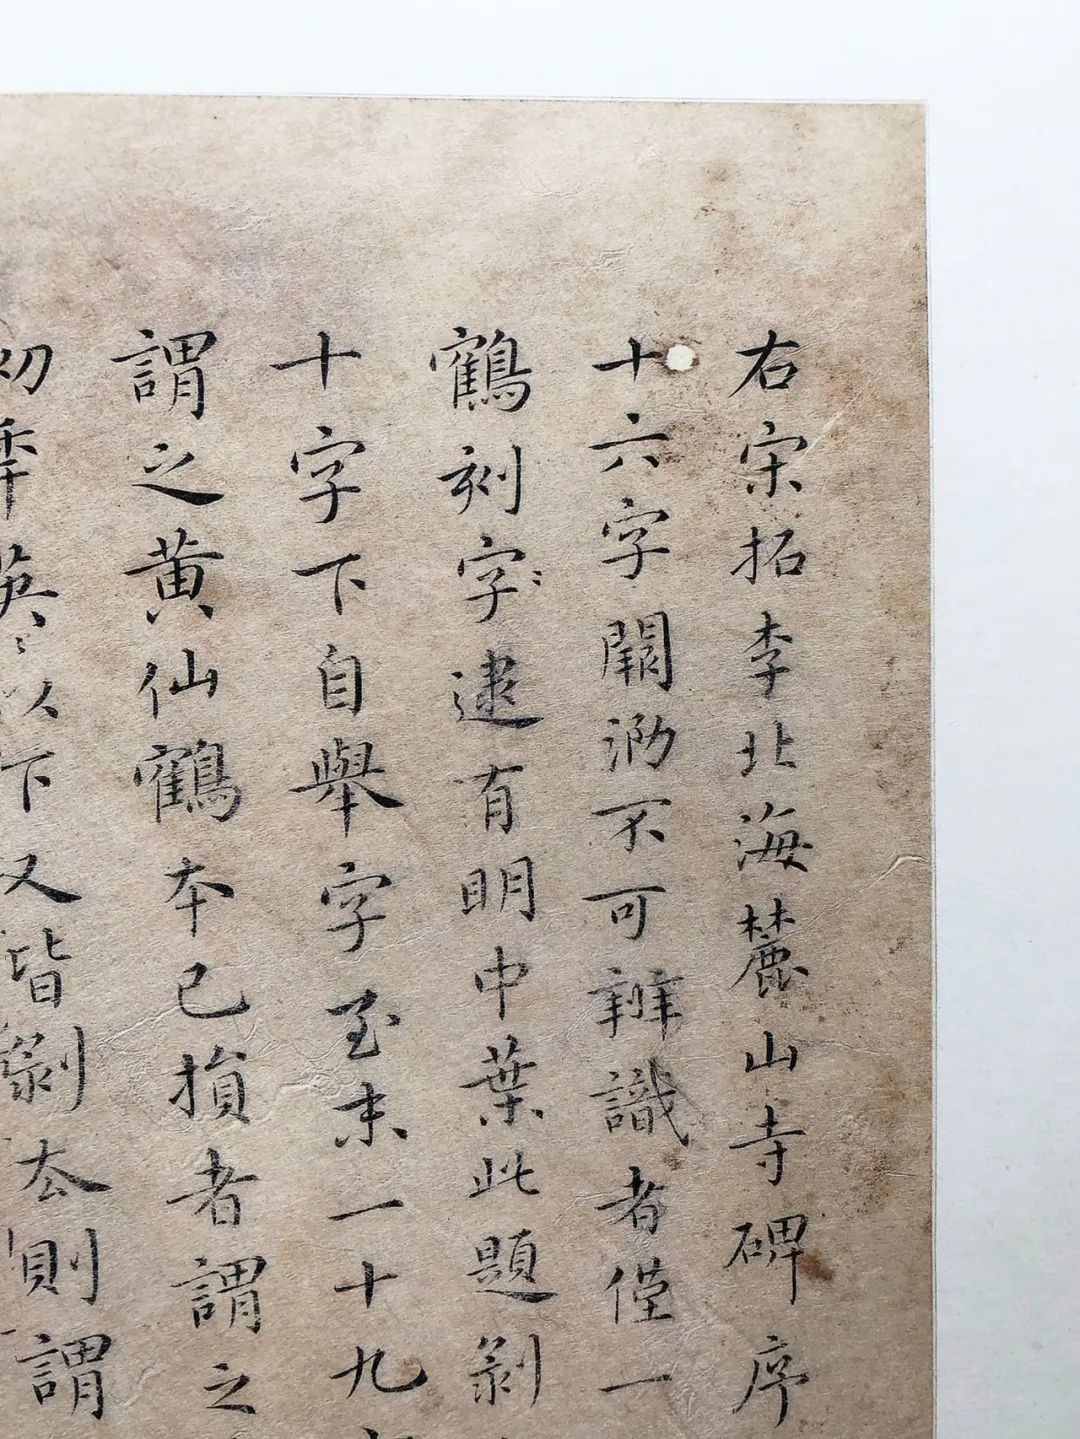 右宋拓李北海麓山寺碑序
十六字闕泐不可辨識者僅一
鶴刻字逮有明中葉此題剝
十字下自舉字至末一十九
謂之黄仙鶴本已損者謂之
初季英以下又皆剝去則謂